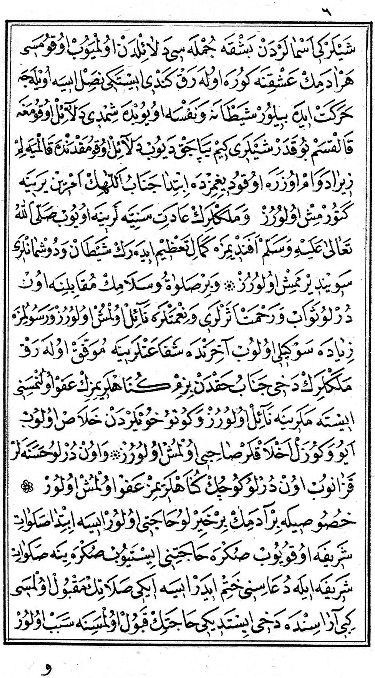 ٦
شيلركى اسمالردن بشقه جمله سى دلائلدن اولميوب اوقومسى
هر آدمك عشقنه كوره اوله رق كندى ايستكى نصل ايسه اويله جه
حركت ايده بيلور شيطانه و نفسه اويوبده شمدى دلائل اوقومغه
قالقسم بو قدر شيلرى كيم ياپاجق ديوب دلائل اوقومقدنده قالميه لم
زيرا دوام اوزره اوقوديغمزده ابتدا جناب اللهك امرين يرينه
كتورمش اولورز وملكلرك عادت سنيه لرينه اويوب صلى الله
تعالى عليه وسلم افنديمزه كمال تعظيم ايده رك شيطان ودوشمانلرى
سويندرمامش اولورز وبر صلوة وسلامك مقابلنه اون
درلو ثواب و رحمت انزلرى ونعمتلره نائل اولمش اولورز ورسولمزه
زياده سوكيلى اولوب آخرتده شفاعتلرينه موفق اوله رق
ملكلرك دخى جناب حقدن بزم كناهلريمزك عفو اولنمسنى
ايسته ملرينه نائل اولورز وكوتو خويلردن خلاص اولوب
ايو وكوزل اخلاقلر صاحبى اولمش اولورز واون درلو حسنه لر
قزانوب اون درلو كوچك كناهلريمز عفو اولمش اولور
خصوصيله بر آدمك بر خيرلو حاجتى اولور ايسه ابتدا صلوات
شريفه اوقويوب صكره حاجتنى ايستيوب صكره ينه صلوات
شريفه ايله دعاسنى ختم ايدر ايسه ايكى صلاتك مقبول اولمسى
كبى آراسنده دخى ايستديكى حاجتك قبول اولمسنه سبب اولور
و